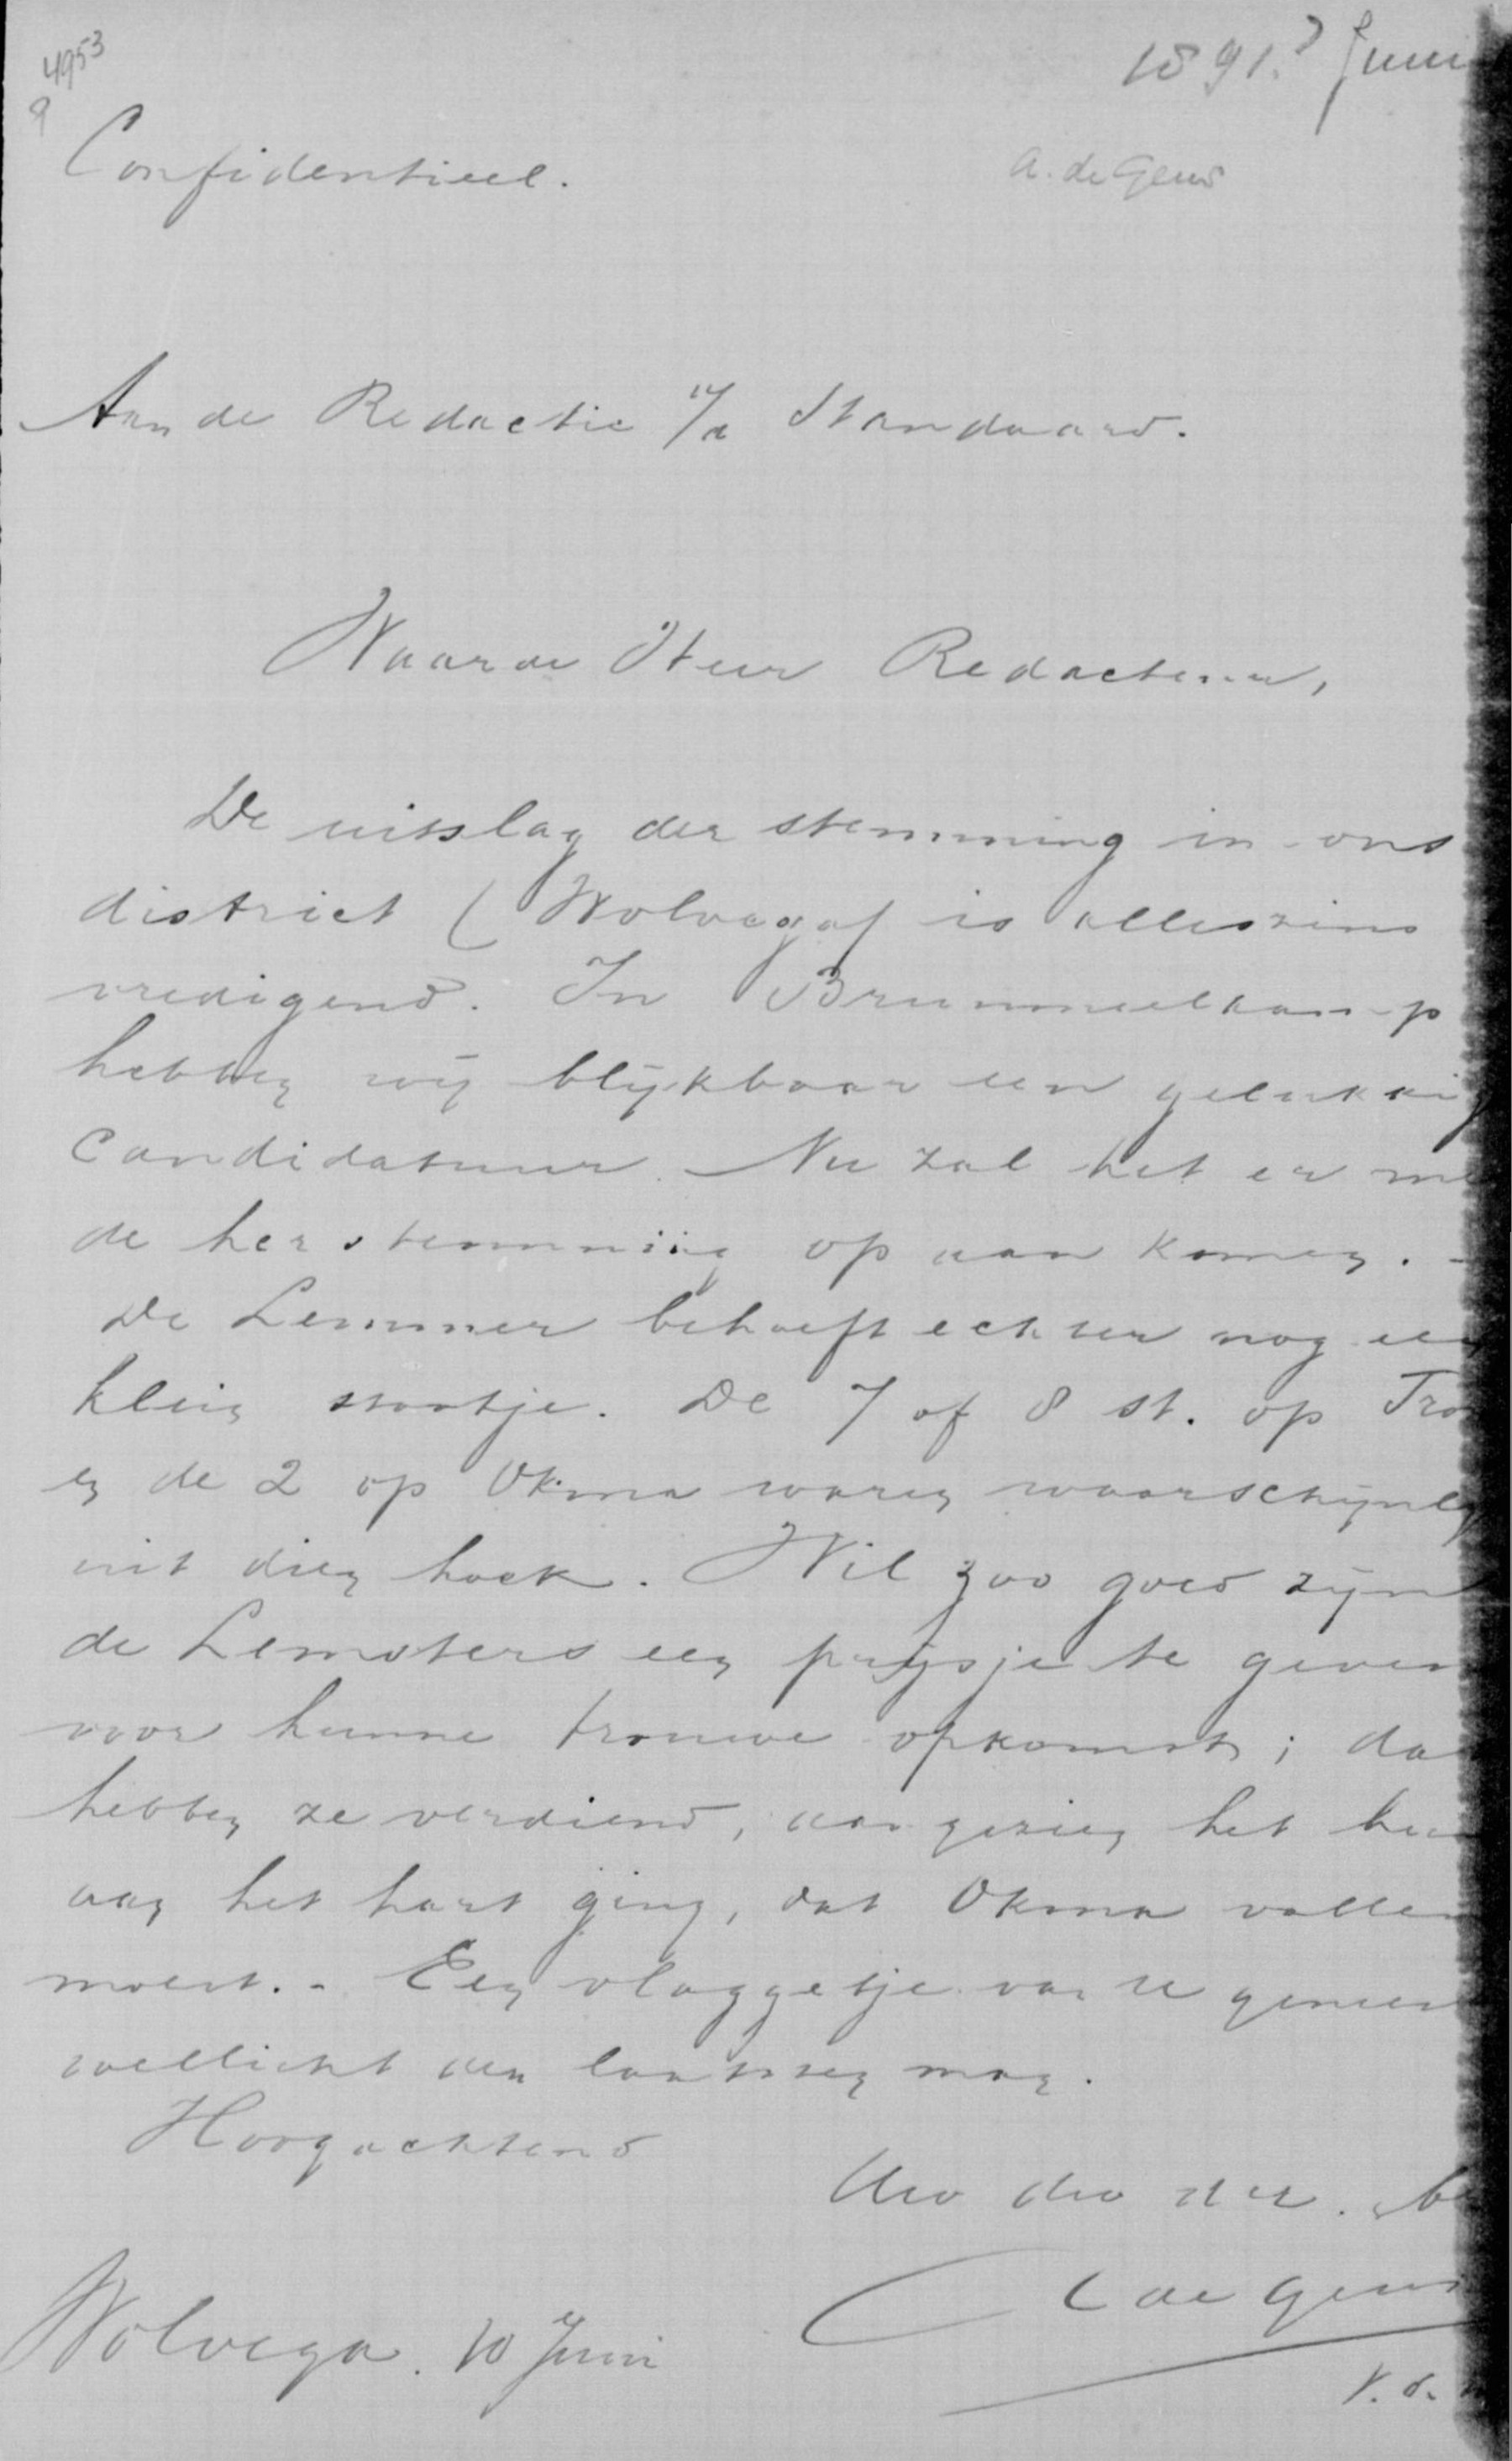 4953
9
1891? Juni
Confidentieel.
A. de Geus
Aan de Redactie v/d Standaard.
Waarde Heer Redacteur,
De uitslag der stemming in ons
district (Wolvega) is alleszins
vredigend. In Brummelkamp
hebben wij blijkbaar een gelukkig
candidatuur. Nu zal het er me
de herstemming op aan komen. -
De Lemmer behoeft echter nog een
klein stootje. De 7 of 8 st. op Tro
en de 2 op Okma waren waarschijnly
uit dien hoek. Wil zoo goed zijn
de Lemsters een prijsje te geven
voor hunne trouwe opkomst; dat
hebben ze verdiend, aangezien het hun
aan het hart ging, dat Okma vallen
moest. - Een vlaggetje van U geneest
wellicht den laatsten man.
Hoogachtend
Uw dw der. 
de Geus
Wolvega. 10 Juni
V. d.